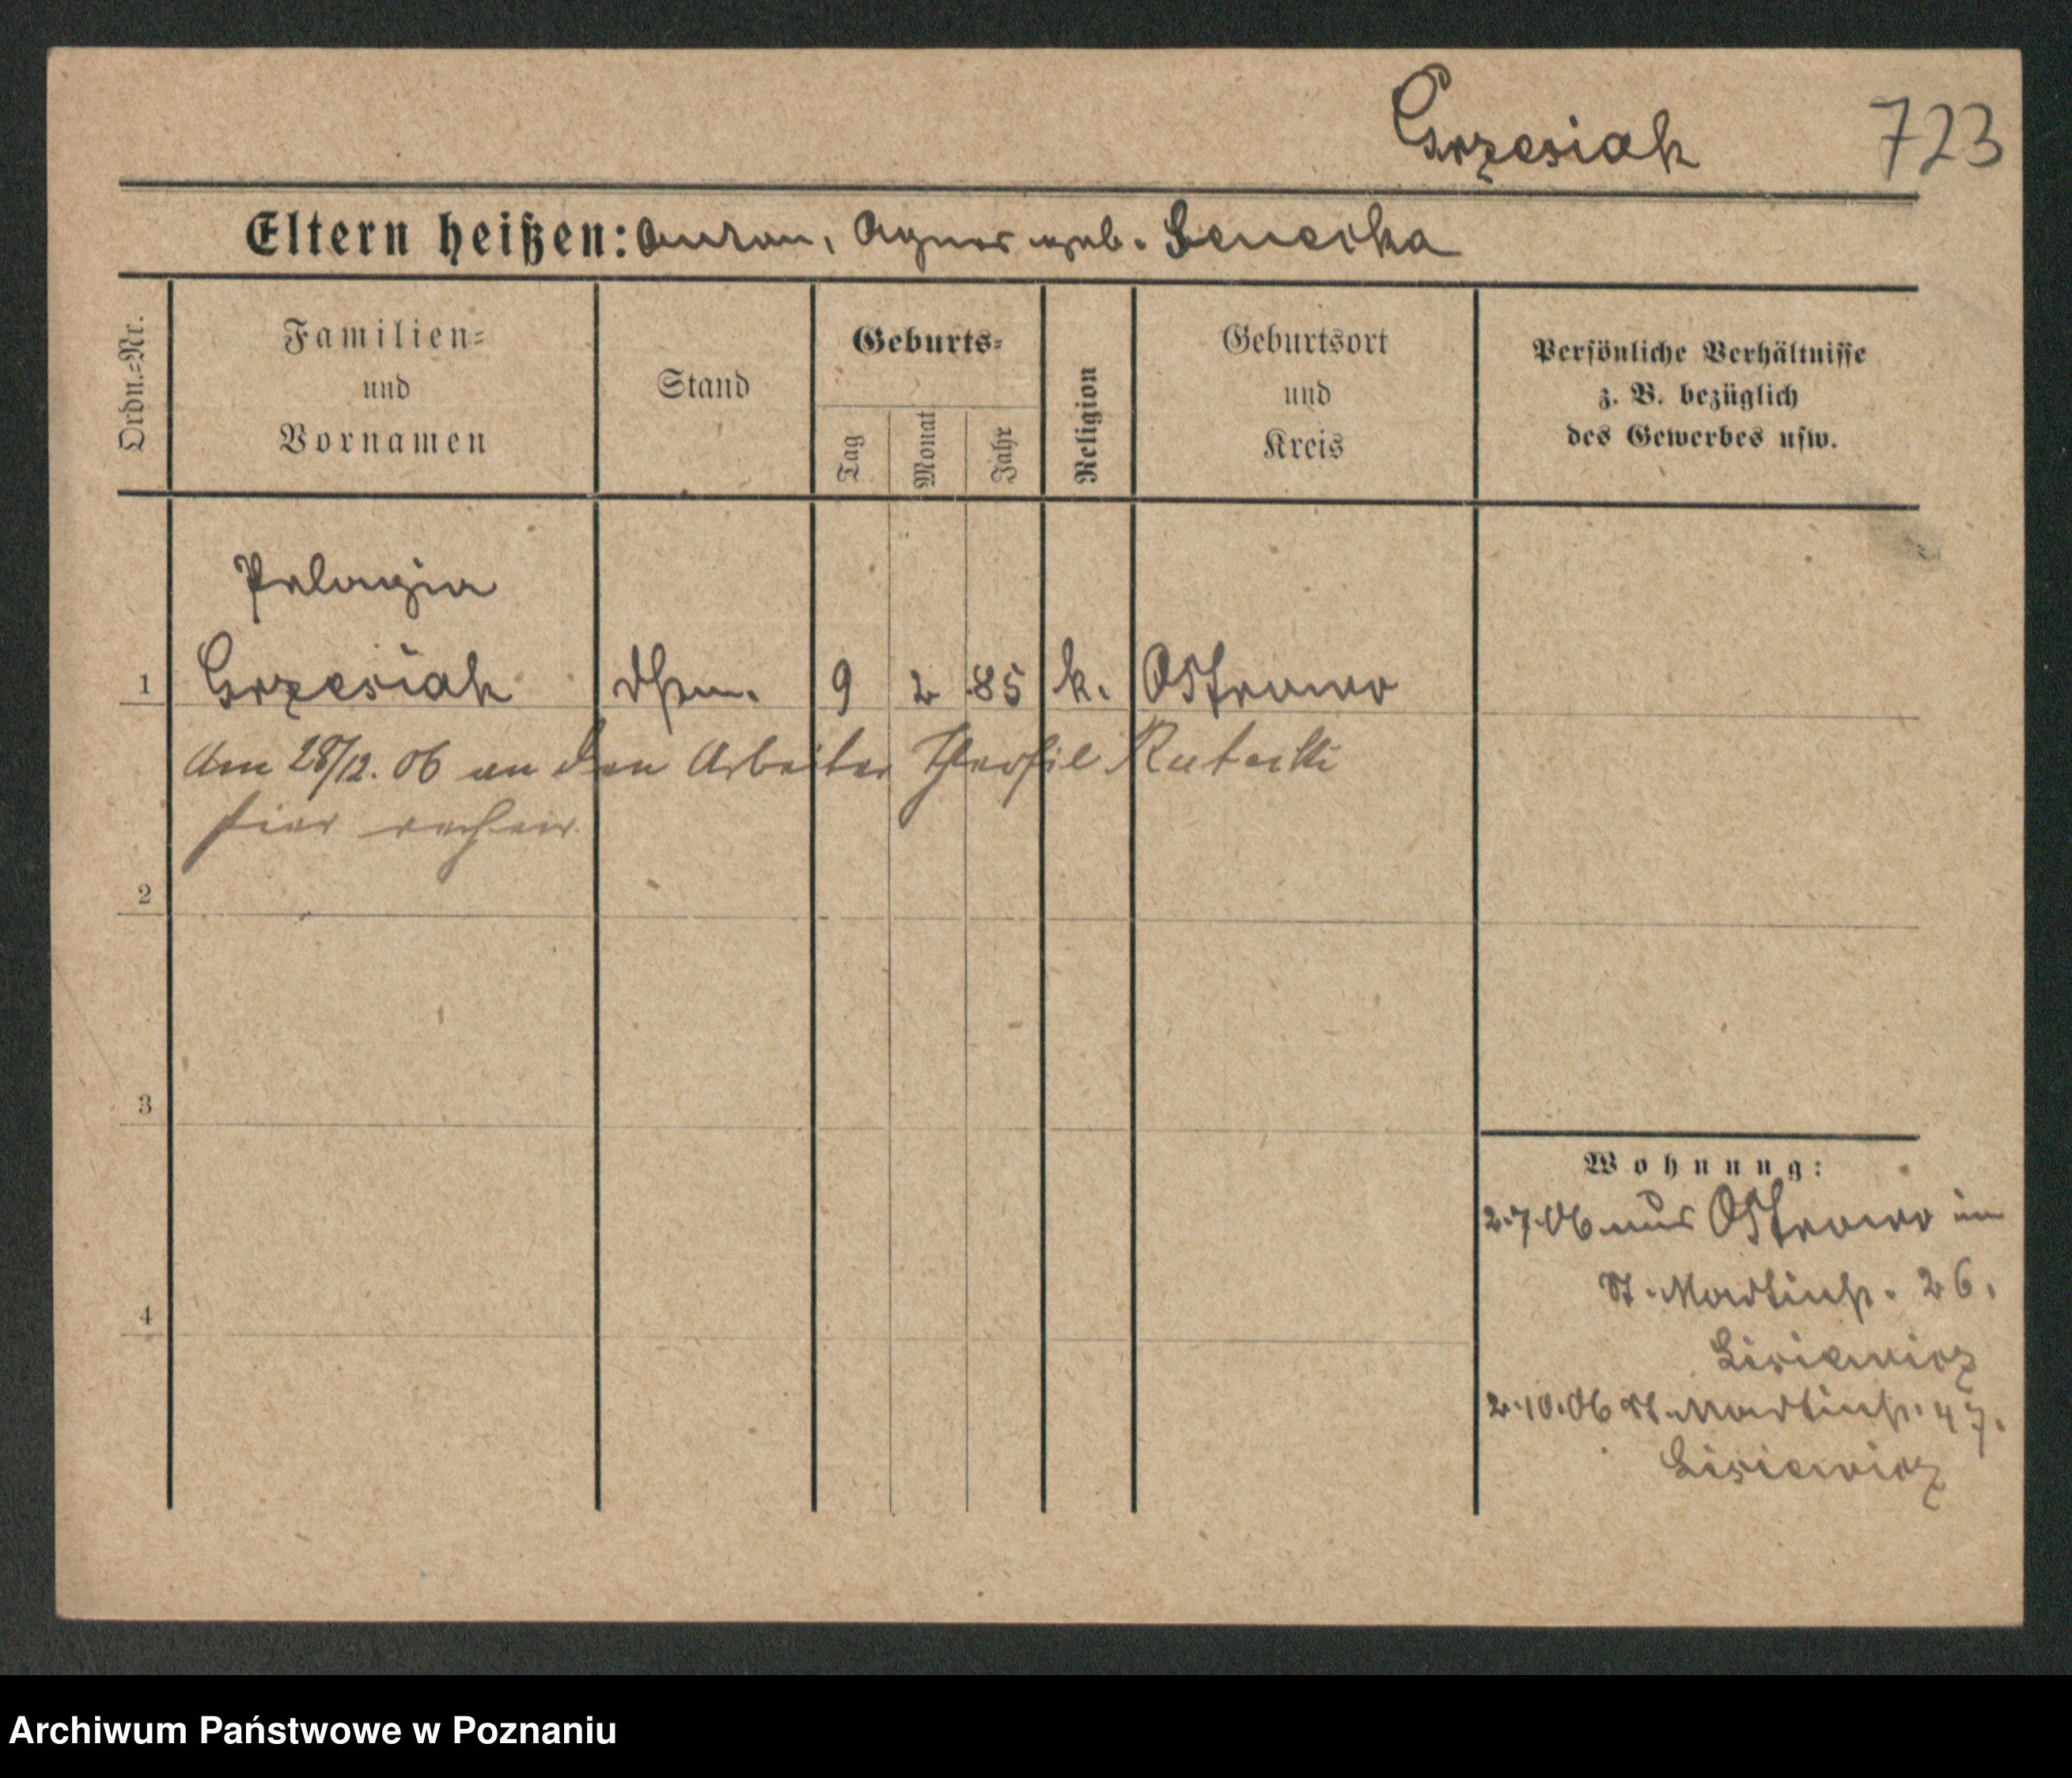 Grzesiak 723
Eltern heißen: Anton, Agnes geb. Senecka
Ordn.=Nr.
Familien=
und
Vornamen
Stand
Geburts=
Tag
Monat
Jahr
Religion
Geburtsort
und
Kreis
Persönliche Verhältnisse
z. B. bezüglich
des Gewerbes usw.
Pelagia
1 Grzesiak 9 2 85 k. Ostrowo
Am 28/12. 06 an den Arbeiter Theofil Rutecki
hier
2
3
4
Wohnung:
2.7.06 aus Ostrowo in
St. Martinstr. 26.
Lisiewicz
2.10.06 St. Martinstr. 47.
Lisiewicz
Archiwum Państwowe w Poznaniu